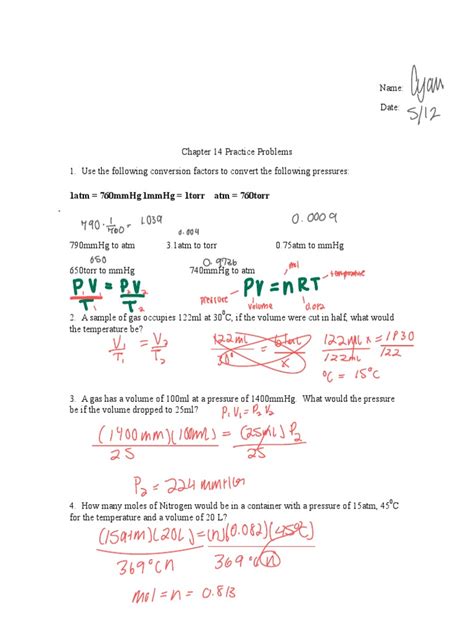 Name: Cyan
Date: 5/12
Chapter 14 Practice Problems
1. Use the following conversion factors to convert the following pressures:
1atm = 760mmHg 1mmHg = 1torr atm = 760torr
790 · 1/760 = 1.039 0.004 0.0009
790mmHg to atm 3.1atm to torr 0.75atm to mmHg
650 0.9736
650torr to mmHg 740mmHg to atm
P₁V₁/T₁ = P₂V₂/T₂ pressure PV = nRT mol temperature
volume 0.0812
2. A sample of gas occupies 122ml at 30⁰C, if the volume were cut in half, what would
the temperature be?
V₁/T₁ = V₂/T₂ 122ml/30° = 61ml/x 122ml x/122ml = 1830/122
°C = 15°C
3. A gas has a volume of 100ml at a pressure of 1400mmHg. What would the pressure
be if the volume dropped to 25ml? P₁V₁ = P₂V₂
(1400mm)(100ml)/25 = (25ml)P₂/25
P₂ = 224mmHg
4. How many moles of Nitrogen would be in a container with a pressure of 15atm, 45⁰C
for the temperature and a volume of 20 L?
(15atm)(20L)/369°Cn = (n)(0.082)(45°C)/369°C
mol = n = 0.813